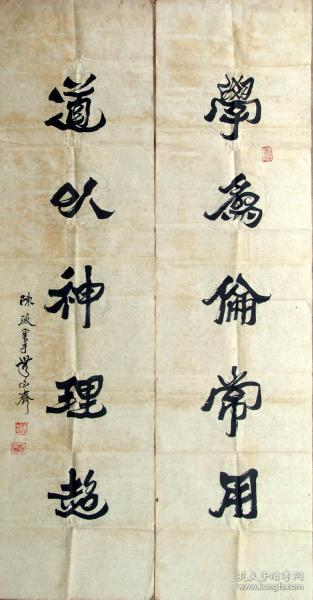 學為倫常用
道以神理超
陳政書于
孔夫子旧书网
www.kongfz.com